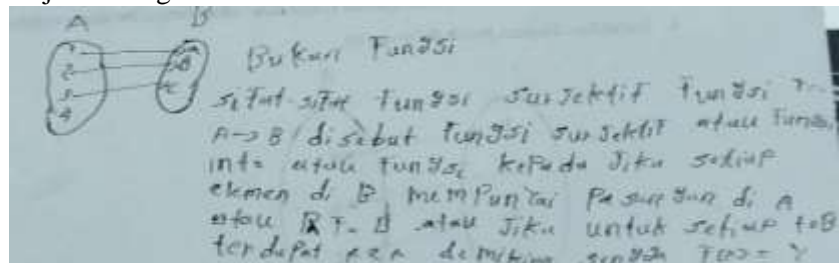 A B
1 A
2 B
3 C
4
Bukan Fungsi
sifat-sifat Fungsi surjektif Fungsi
A→B disebut fungsi surjektif atau Fungsi
into atau Fungsi kepada Jika setiap
elemen di B mempunyai pasangan di A
atau RF = B atau Jika untuk setiap
terdapat demikian